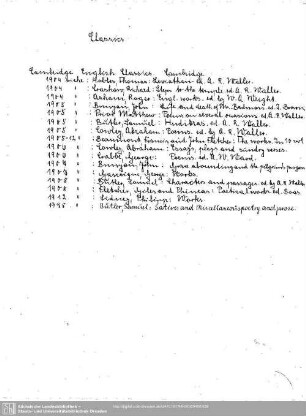 Classics
Cambridge English Classics. Cambridge
1904 : Hobbes, Thomas: Leviathan ed. A. R. Waller.
1904 " : Crashaw, Richard: Steps to the temple ed. A. R. Waller.
1904 " : Ascham, Roger: Engl. works. ed. by W. A. Wright.
1905 " : Bunyan John : Life and death of Mr. Badman ed. J. Brown
1905 " : Prior Matthew : Poems on several occasions ed. A. R. Waller
1905 " : Butler, Samuel : Hudibras. ed. A. R. Waller.
1905 " : Cowley Abraham : Poems. ed. by A. R. Waller.
1905-12 " : Beaumont Francis and John Fletcher : The works. In 10 vol
" : Cowley, Abraham : Essays, plays and sundry verses.
" : Crabbe, George : Poems. ed. A. W. Ward.
" : Bunyan, John : Grace abounding and the pilgrim's progress
" : Gascoigne, George : Works.
1908 " : Butler, Samuel : Characters and passages. ed. by A. R. Waller
1908 " : Fletcher, Giles and Phineas : Poetical works ed. Boas
1912 " : Sidney, Philipp : Works.
" : Butler, Samuel : Satires and Miscellaneous poetry and prose.